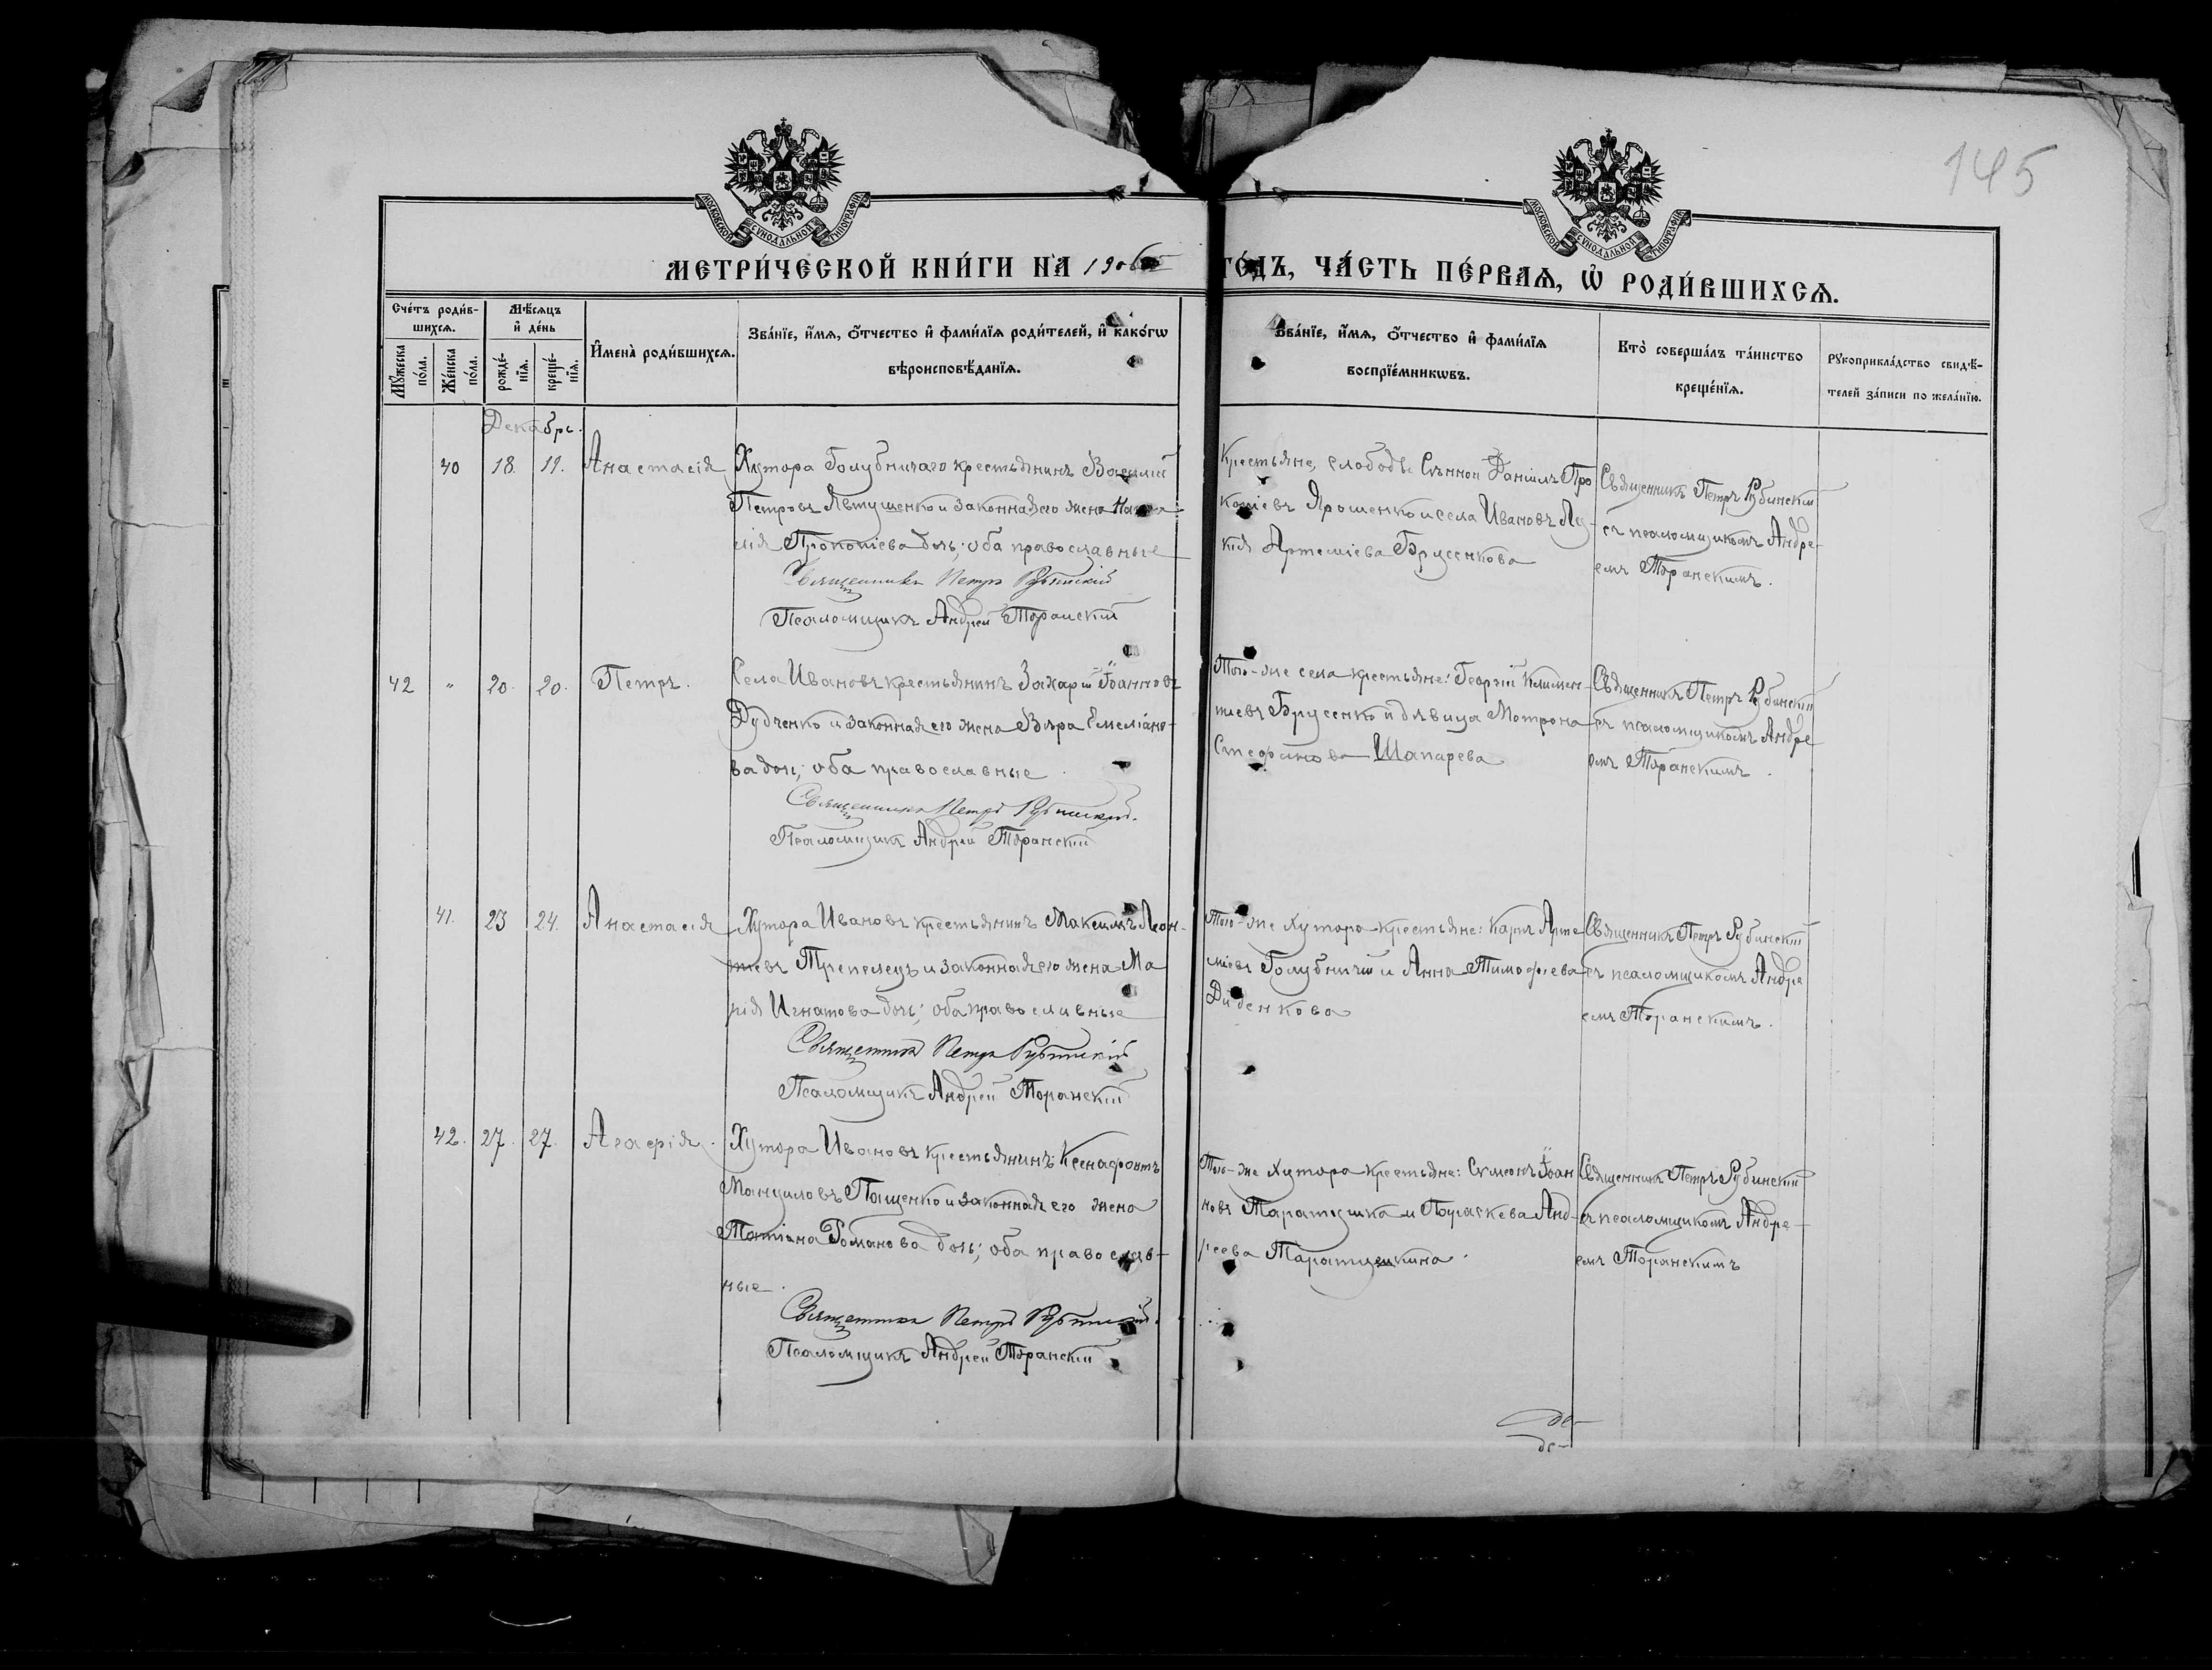 145
МОСКОВСКОЙ СУНОДАЛЬНОЙ ТИПОГРАФІИ
МОСКОВСКОЙ СУНОДАЛЬНОЙ ТИПОГРАФІИ
МЕТРИ́ЧЕСКОЙ КНИ́ГИ НА 190 ГО́ДЪ, ЧА́СТЬ ПЕ́РВАѦ, Ѡ҆ РОДИ́ВШИХСѦ.
Сче́тъ роди́в-
шихсѧ.
Мꙋ́жеска по́ла.
Же́нска по́ла.
Мѣ́сѧцъ
и҆ де́нь
рожде́-
нїѧ.
креще́-
нїѧ.
И҆мена̀ роди́вшихсѧ.
Зва́нїе, и҆́мѧ, ѻ҆́тчество и҆ фами́лїѧ роди́телей, и҆ како́гѡ
вѣроисповѣ́данїѧ.
Зва́нїе, и҆́мѧ, ѻ҆́тчество и҆ фами́лїѧ
воспрїе́мникѡвъ.
Кто̀ соверша́лъ та́инство
креще́нїѧ.
Рꙋкоприкла́дство свидѣ́-
телей за́писи по жела́нїю.
Декабрь.
40 18. 19. Анастасія
Хутора Голубничаго крестьянинъ Василій
Петровъ Явтушенко и законная его жена
Прокопіева дочь; оба православные
Священникъ Петръ Рубинскій
Псаломщикъ Андрей Торанскій
Крестьяне, слободы Сѣнной Даніилъ Про
копіевъ Ярошенко и села Ивановъ Лу-
кія Артеміева Брусенкова
Священникъ Петръ Рубинскій
съ псаломщикомъ Андре-
емъ Торанскимъ.
42 " 20. 20. Петръ.
Села Ивановъ крестьянинъ Захарій Іоанновъ
Дудченко и законная его жена Вѣра Емеліано-
ва дочь; оба православные.
Священникъ Петръ Рубинскій.
Псаломщикъ Андрей Торанскій
Того-же села крестьяне: Георгій Климен-
тіевъ Брусенко и дѣвица Мотрона
Стефанова Шапарева
Священникъ Петръ Рубинскій
съ псаломщикомъ Андре
емъ Торанскимъ.
41. 23 24. Анастасія
Хутора Ивановъ крестьянинъ Максимъ Леон-
тіевъ Трепелецъ и законная его жена Ма
рія Игнатова дочь; оба православные
Священникъ Петръ Рубинскій
Псаломщикъ Андрей Торанскій
Того-же хутора крестьяне: Карпъ Арте
міевъ Голубничій и Анна Тимофеева
Диденкова
Священникъ Петръ Рубинскій
съ псаломщикомъ Андре
емъ Торанскимъ.
42. 27. 27. Агафія.
Хутора Ивановъ крестьянинъ Ксенафонтъ
Мануиловъ Пащенко и законная его жена
Татіана Романова дочь; оба православ-
ные.
Священникъ Петръ Рубинскій.
Псаломщикъ Андрей Торанскій
Того-же хутора крестьяне: Сумеонъ Іоан
новъ Таратушка и Параскева Анд-
реева Таратушкина.
Священникъ Петръ Рубинскій
съ псаломщикомъ Андре-
емъ Торанскимъ